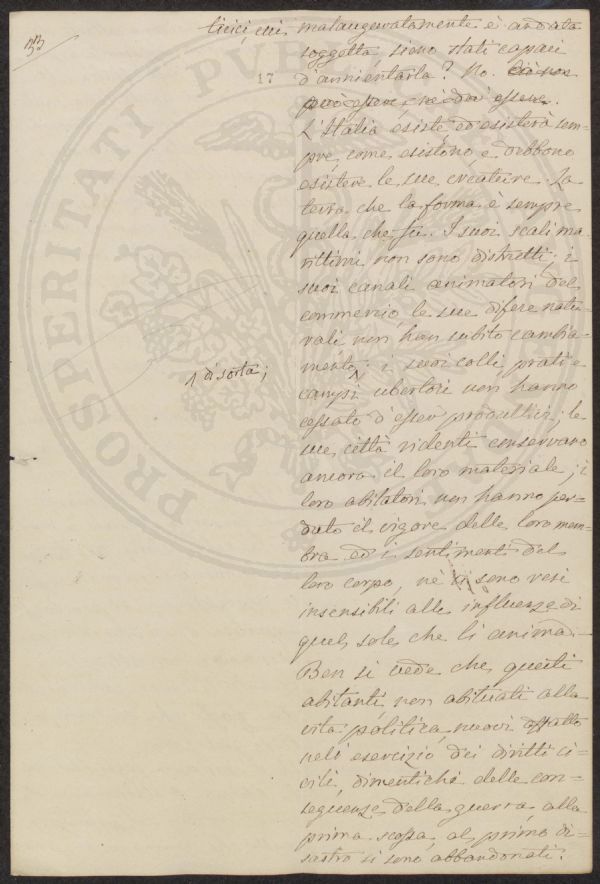 33
17
litici, cui malauguratamente è andata
soggetta, siano stati capaci
d'annientarla? No. Ciò non
può essere, nè dee essere.
L'Italia esiste, ed esisterà sem=
pre, come esistono, e debbono
esistere le sue creature. La
terra che la forma è sempre
quella che fu. I suoi scali ma
rittimi non sono distrutti; i
suoi canali animatori del
commercio, le sue difese natu=
rali non han subito cambia=
mento; i suoi colli, prati e
1 di sorta;
campi ubertosi non hanno
cessato d'esser produttivi; le
sue città ridenti conservano
ancora il loro materiale; i
loro abitatori non hanno per=
duto il vigore delle loro mem=
bra ed i sentimenti del
loro corpo, nè si sono resi
insensibili alle influenze di
quel sole che li anima.
Ben si vede che questi
abitanti, non abituati alla
vita politica, nuovi affatto
nell'esercizio dei diritti ci=
vili, dimentichi delle con=
seguenze della guerra, alla
prima scossa, al primo di=
sastro si sono abbandonati.
PROSPERITATI PUBLICAE